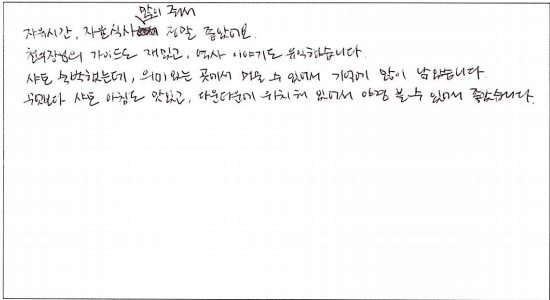 많이 줘서
자유시간, 자율식사 정말 좋았어요.
가이드도 재밌고, 역사 이야기도 유익했습니다.
숙박했는데, 의미 있는 곳에서 머물 수 있어서 기억에 많이 남았습니다.
무엇보다 아침도 맛있고, 다운타운에 위치해 있어서 야경 볼 수 있어서 좋았습니다.